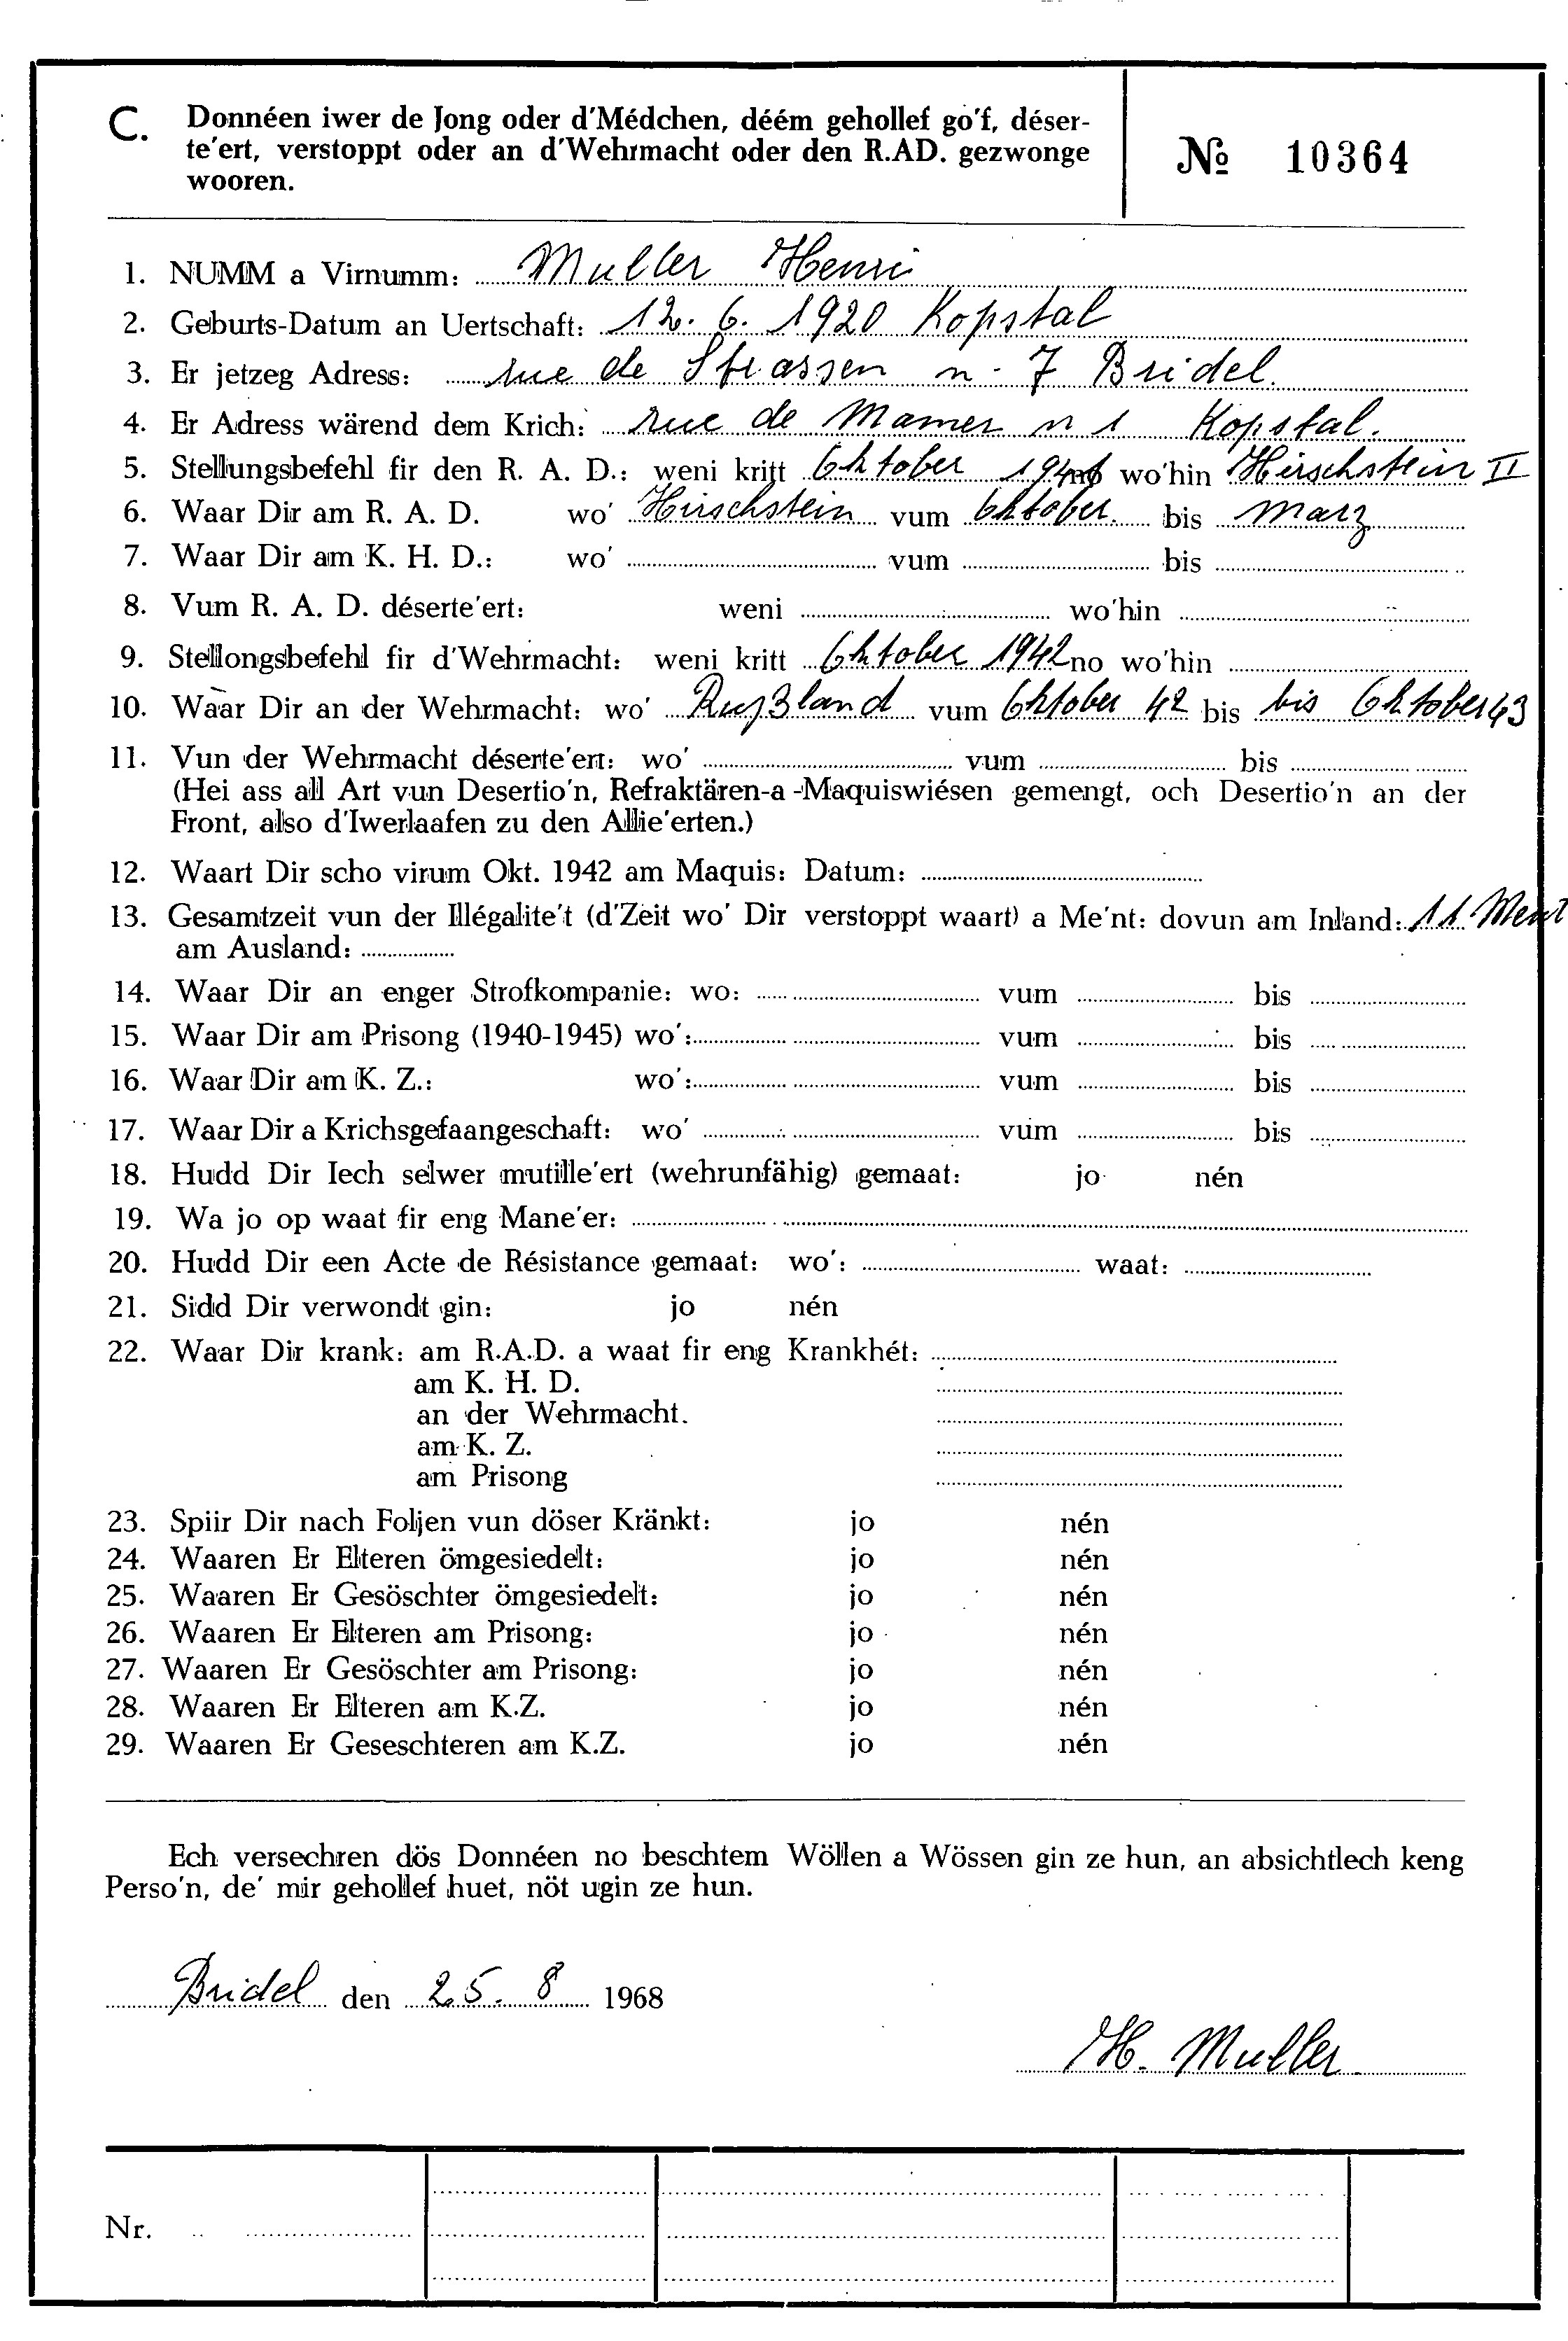 C. Donnéen iwer de Jong oder d'Médchen, déém gehollef go'f, déser-
te'ert, verstoppt oder an d'Wehrmacht oder den R.AD. gezwonge
wooren.
№ 10364
1. NUMM a Virnumm: Muller Henri
2. Geburts-Datum an Uertschaft: 12. 6. 1920 Kopstal
3. Er jetzeg Adress: rue de Strassen n. 7 Bridel.
4. Er Adress wärend dem Krich: rue de Mamer n 1 Kopstal.
5. Stellungsbefehl fir den R. A. D.: weni kritt Oktober wo'hin Hirschstein II
6. Waar Dir am R. A. D. wo' Hirschstein vum Oktober. bis Marz
7. Waar Dir am K. H. D.: wo' vum bis
8. Vum R. A. D. déserte'ert: weni wo'hin
9. Stellongsbefehl fir d'Wehrmacht: weni kritt Oktober 1942 no wo'hin
10. Waar Dir an der Wehrmacht: wo' Rußland vum Oktober 42 bis bis Oktober 43
11. Vun der Wehrmacht déserte'ert: wo' vum bis
(Hei ass all Art vun Desertio'n, Refraktären-a-Maquiswiésen gemengt, och Desertio'n an der
Front, also d'Iwerlaafen zu den Allie'erten.)
12. Waart Dir scho virum Okt. 1942 am Maquis: Datum:
13. Gesamtzeit vun der Illégalite't (d'Zeit wo' Dir verstoppt waart) a Me'nt: dovun am Inland: 11 Ment
am Ausland:
14. Waar Dir an enger Strofkompanie: wo: vum bis
15. Waar Dir am Prisong (1940-1945) wo': vum bis
16. Waar Dir am K. Z.: wo': vum bis
17. Waar Dir a Krichsgefaangeschaft: wo' vum bis
18. Hudd Dir Iech selwer mutille'ert (wehrunfähig) gemaat: jo nén
19. Wa jo op waat fir eng Mane'er:
20. Hudd Dir een Acte de Résistance gemaat: wo': waat:
21. Sidd Dir verwondt gin: jo nén
22. Waar Dir krank: am R.A.D. a waat fir eng Krankhét:
am K. H. D.
an der Wehrmacht.
am K. Z.
am Prisong
23. Spiir Dir nach Foljen vun döser Kränkt: jo nén
24. Waaren Er Elteren ömgesiedelt: jo nén
25. Waaren Er Gesöschter ömgesiedelt: jo nén
26. Waaren Er Elteren am Prisong: jo nén
27. Waaren Er Gesöschter am Prisong: jo nén
28. Waaren Er Elteren am K.Z. jo nén
29. Waaren Er Geseschteren am K.Z. jo nén
Ech versechren dös Donnéen no beschtem Wöllen a Wössen gin ze hun, an absichtlech keng
Perso'n, de' mir gehollef huet, nöt ugin ze hun.
Bridel den 25. 8 1968
H. Muller
Nr.